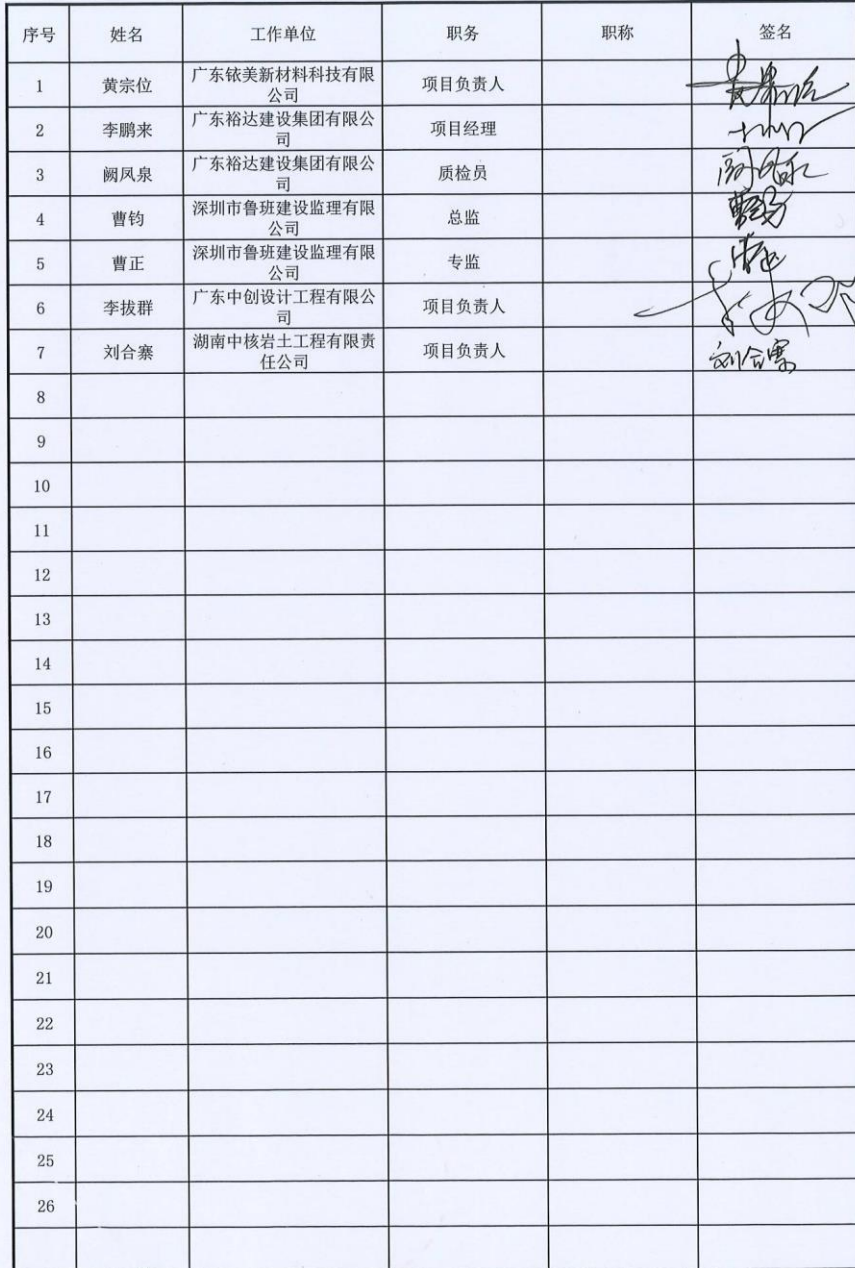 序号 姓名 工作单位 职务 职称 签名
1 黄宗位 广东铱美新材料科技有限公司 项目负责人
2 李鹏来 广东裕达建设集团有限公司 项目经理
3 阙凤泉 广东裕达建设集团有限公司 质检员
4 曹钧 深圳市鲁班建设监理有限公司 总监
5 曹正 深圳市鲁班建设监理有限公司 专监
6 李拔群 广东中创设计工程有限公司 项目负责人
7 刘合寨 湖南中核岩土工程有限责任公司 项目负责人 刘合寨
8
9
10
11
12
13
14
15
16
17
18
19
20
21
22
23
24
25
26